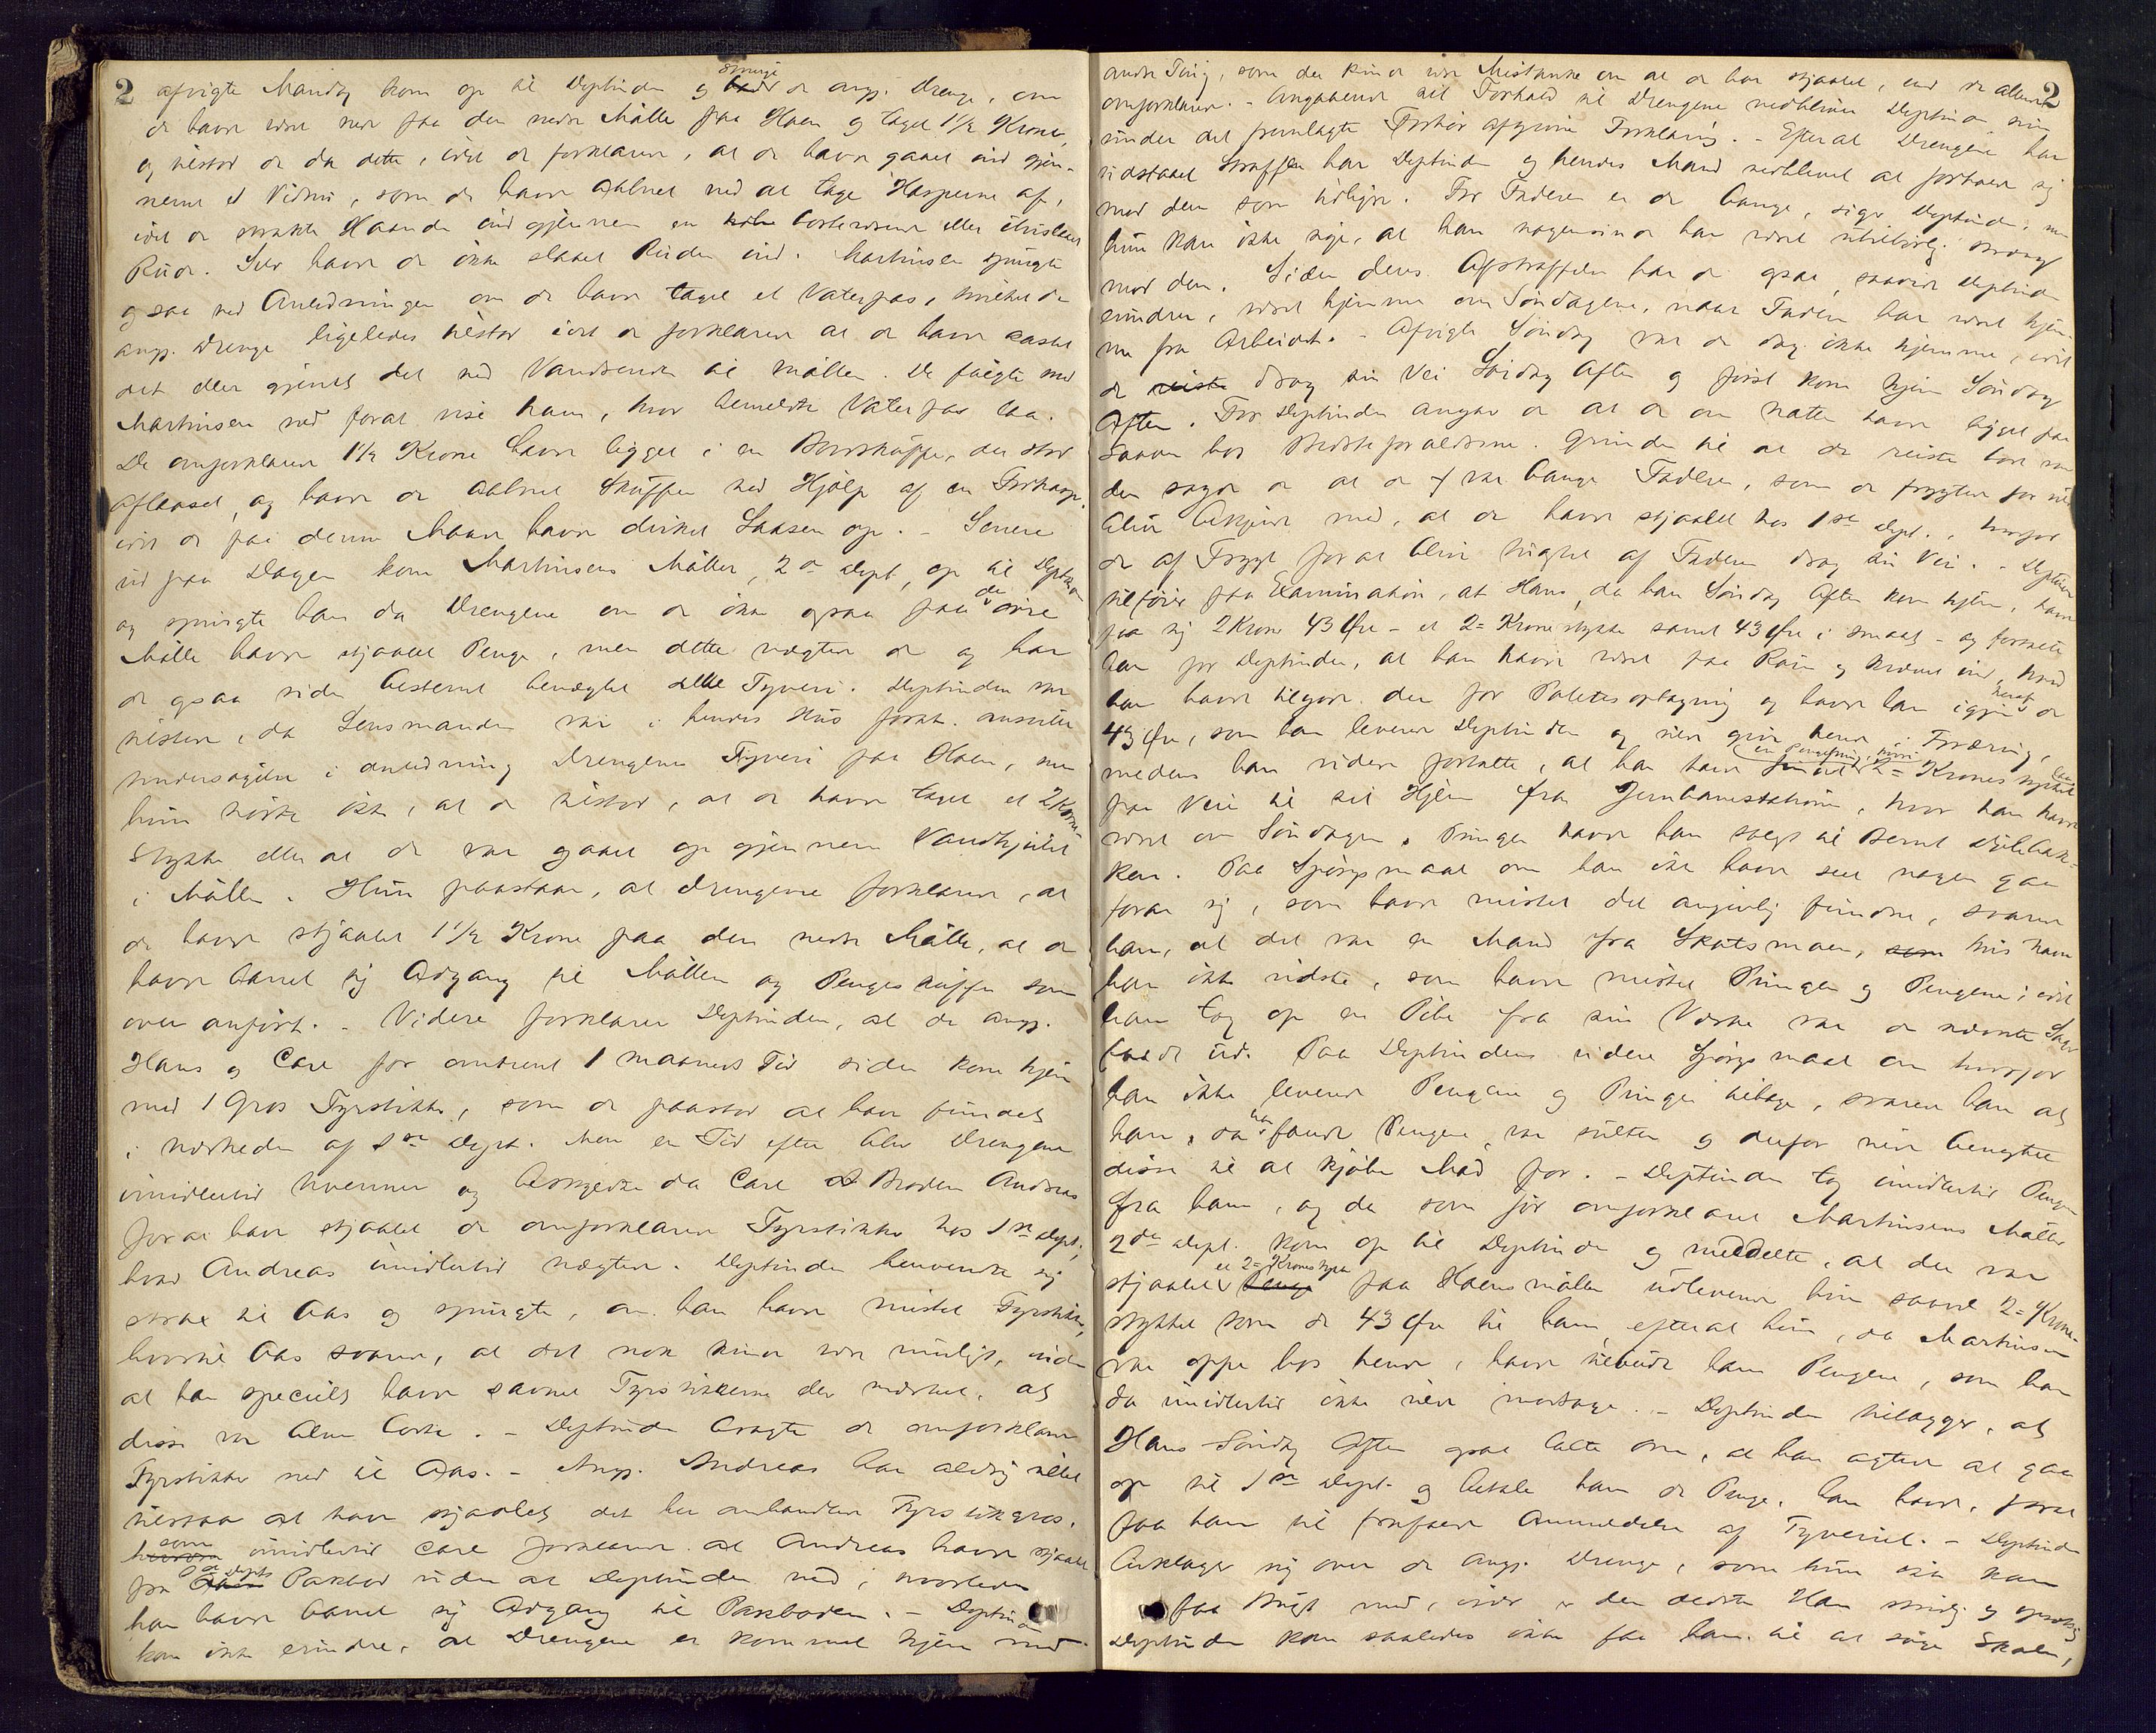 2
afvigte Mandag kom op til Deptinden og spurgte de angj. Drenge, om
de havde været nede paa den nedre Mølle paa Hoen og taget 1½ Krone,
og tilstod de da dette, idet de forklarede, at de havde gaaet ind gjen-
nem et Vindu, som de havde aabnet ved at tage Hasperne af,
idet de strakte Haanden ind gjennem en bortværende eller itu slaaet
Rude. Selv havde de ikke slaaet Ruden ind. Martinsen spurgte
ogsaa ved Anledningen om de havde taget et Vaterpas, hvilket de
angj. Drenge ligeledes tilstod idet de forklarede at de havde kastet
det eller gjemt det ved Vandrenden til Møllen. De fulgte med
Martinsen ned forat vise ham, hvor bemeldte Vaterpas laa.
De omforklarede 1½ Krone havde ligget i en Bordskuffe, der stod
aflaaset, og havde de aabnet Skuffen ved Hjælp af en
idet de paa denne Maade havde dirket Laasen op. - Senere
ud paa Dagen kom Martinsens Møller, 2de Dept, op til Deptinden
og spurgte han da Drengene om de ikke ogsaa paa den øvre
Mølle havde stjaalet Penge, men dette nægtede de og har
de ogsaa siden bestemt benægtet dette Tyveri. Deptinden var
tilstede, da Lensmanden var i hendes Hus forat anstille
Undersøgelse i Anledning Drengenes Tyveri paa Hoen, men
hun hørte ikke, at de tilstod, at de havde taget et 2 Krone-
stykke eller at de var gaaet op gjennem Vandhjulet
i Møllen. Hun paastaar, at Drengene forklarede, at
de havde stjaalet 1½ Krone paa den nedre Mølle, at de
havde banet sig Adgang til Møllen og Pengeskuffen som
ovenanført. - Videre forklarer Deptinden, at de angj.
Hans og Carl for omtrent 1 Maaneds Tid siden kom hjem
med 1 Gros Fyrstikker, som de paastod at have fundet
i Nærheden af 1ste Dept. Men en Tid efter blev Drengene
imidlertid uvenner og beskyldte da Carl Broderen Andreas
forat have stjaalet de omforklarede Fyrstikker hos 1ste Dept,
hvad Andreas imidlertid nægtede. Deptinden henvendte sig
strax til Aas og spurgte, om han havde mistet Fyrstikker,
hvortil Aas svarede, at det nok kunde være muligt, uden
at han specielt havde savnet Fyrstikkerne eller mærket, at
disse var blevne borte. - Deptinden bragte de omforklarede
Fyrstikker ned til Aas. - Angj. Andreas har aldrig villet
tilstaa at have stjaalet det her omhandlede Fyrstikgros,
som imidlertid Carl forklarede at Andreas havde stjaalet
fra 1ste Depts Pakbod uden at Deptinden ved, hvorledes
han havde banet sig Adgang til Pakboden. - Deptinden
kan ikke erindre, at Drengene er kommet hjem med
2
andre Ting, som der kunde være Mistanke om at de har stjaalet, end de allerede
omforklarede. - Angaaende sit Forhold til Drengene vedbliver Deptinden sin
under det fremlagte Forhør afgivne Forklaring. - Efterat Drengene har
udstaaet Straffen har Deptinden og hendes Mand vedblevet at forholde sig
mod dem som tidligere. For Faderen er de bange, siger Deptinden, men
hun kan ikke sige, at han nogensinde har været utilbørlig streng
mod dem. Siden deres Afstraffelse har de ogsaa, saavidt Deptinden
erindrer, været hjemme om Søndagene, naar Faderen har været hjem-
me fra Arbeidet. - Afvigte Søndag var de dog ikke hjemme, idet
de drog sin Vei Lørdag Aften og først kom hjem Søndag
Aften. For Deptinden angav de at de om Natten havde ligget paa
Laaven hos Bedsteforældrene. Grunden til at de reiste bort var
den sagde de at de var bange Faderen, som de frygtede for vilde
blive bekjendt med, at de havde stjaalet hos 1ste Dept., hvorfor
de af Frygt for at blive hugget af Faderen drog sin Vei. - Deptinden
tilføier paa Examination, at Hans, da han Søndag Aften kom hjem, havde
paa sig 2 Kroner 43 Øre - et 2-Kronestykke samt 43 Øre i smaat - og fortalte
han for Deptinden, at han havde været paa Ruin og krævet ind, hvad
han havde tilgode der for Potetesoptagning og havde han igjen heraf de
43 Øre, som han leverede Deptinden og vilde give hende i Foræring,
medens han videre fortalte, at han havde en Pengepung, hvori 2-Kronesstykket laa
paa Veien til sit Hjem fra Jernbanestationen, hvor han havde
været om Søndagen. Pungen havde han solgt til Bernt
ken. Paa Spørgsmaal om han ikke havde seet nogen gaa
foran sig, som havde mistet det angivelig fundne, svarede
han, at det var en Mand fra Skotsmoen, hvis Navn
han ikke vidste, som havde mistet Pungen og Pengene; idet
han tog op en Pibe fra sin Væske var de nævnte Sager
faldt ud. Paa Deptindens videre Spørgsmaal om hvorfor
han ikke leverede Pengene og Pungen tilbage, svarede han at
han, da han fandt Pengene, var sulten og derfor vilde benytte
disse til at kjøbe Mad for. - Deptinden tog imidlertid Pengene
fra ham, og da som før omforklaret Martinsens Møller
2den Dept. kom op til Deptinden og meddelte, at der var
stjaalet et 2-Kronestykke paa Hoensmøllen udleverede hun saavel 2-Krone-
stykket som de 43 Øre til ham, efterat hun, da Martinsen
var oppe hos hende, havde tilbudt ham Pengene, som han
da imidlertid ikke vilde modtage. - Deptinden tillægger, at
Hans Søndag Aften ogsaa talte om, at han agtede at gaa
op til 1ste Dept. og betale ham de Penge, han havde, forat
faa ham til frafalde Anmeldelse af Tyveriet. - Deptinden
beklager sig over de angj. Drenge, som hun ikke kan
faa Bugt med, især er den ældste Hans og
Deptinden kan saaledes ikke faa ham til at søge Skolen,